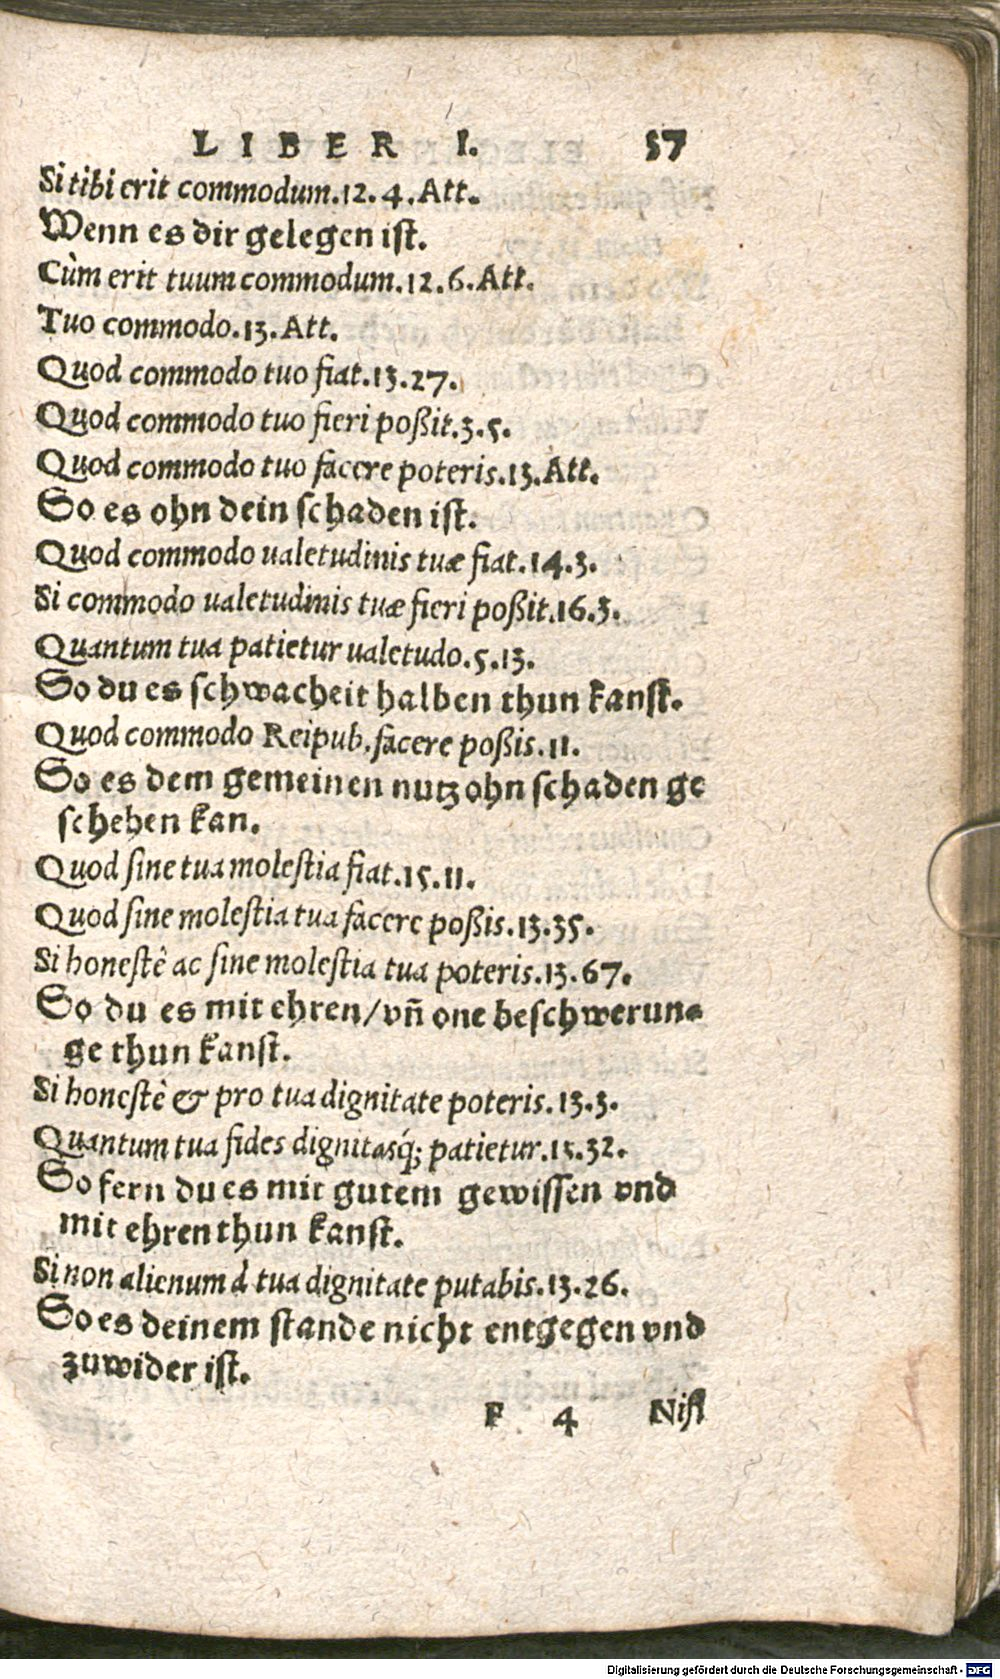 LIBER I. 57
Si tibi erit commodum.12.4.Att.
Wenn es dir gelegen ist.
Cùm erit tuum commodum.12.6.Att.
Tuo commodo.13.Att.
Quod commodo tuo fiat.13.27.
Quod commodo tuo fieri poßit.3.5.
Quod commodo tuo facere poteris.13.Att.
So es ohn dein schaden ist.
Quod commodo ualetudinis tuæ fiat.14.3.
Si commodo ualetudinis tuæ fieri poßit.16.3.
Quantum tua patietur ualetudo.5.13.
So du es schwacheit halben thun kanst.
Quod commodo Reipub. facere poßis.11.
So es dem gemeinen nutz ohn schaden ge
schehen kan.
Quod sine tua molestia fiat.15.11.
Quod sine molestia tua facere poßis.13.35.
Si honestê ac sine molestia tua poteris.13.67.
So du es mit ehren/vñ one beschwerun=
ge thun kanst.
Si honestê & pro tua dignitate poteris.13.3.
Quantum tua fides dignitasq́; patietur.15.32.
So fern du es mit gutem gewissen vnd
mit ehren thun kanst.
Si non alienum à tua dignitate putabis.13.26.
So es deinem stande nicht entgegen vnd
zuwider ist.
F 4 Nisi
Digitalisierung gefördert durch die Deutsche Forschungsgemeinschaft - DFG